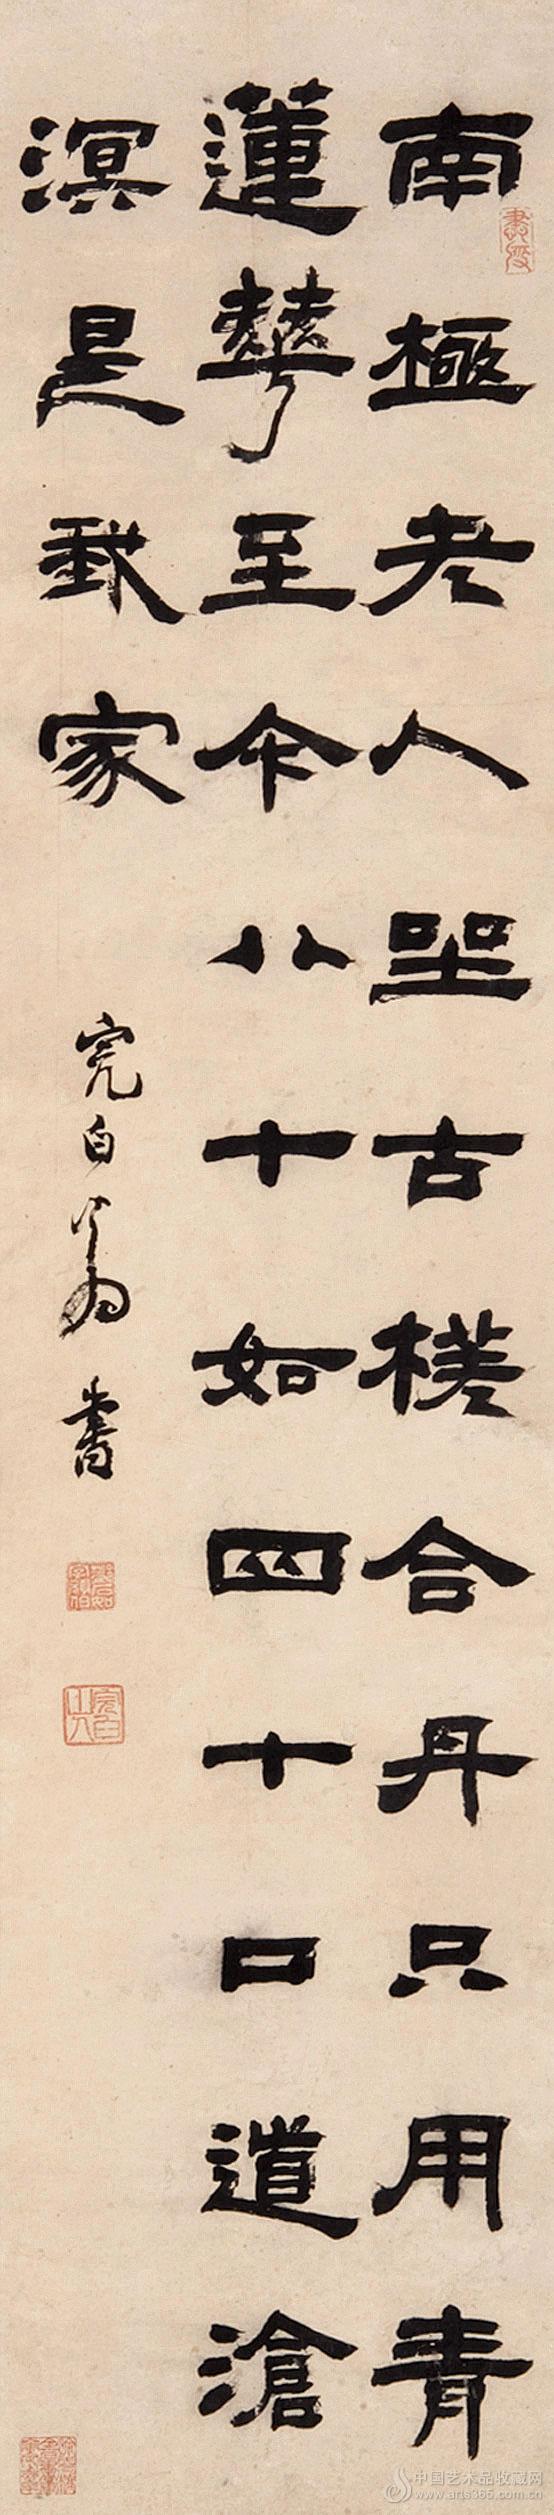 南極老人坐古槎合丹只用青
蓮華至今八十如四十口道滄
溟是我家
完白翁書
完白山人
中国艺术品收藏网
www.arts365.com.cn